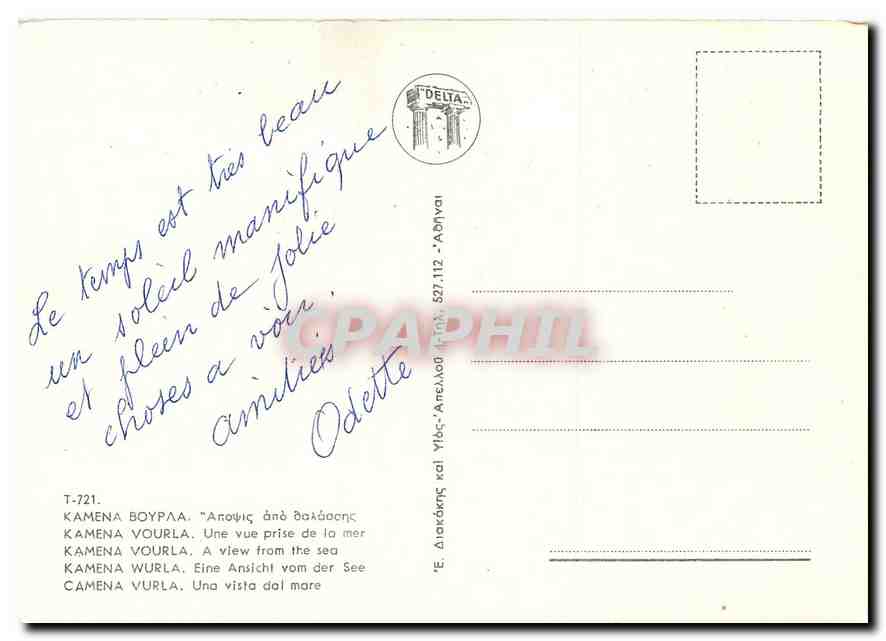 Le temps est très beau
un soleil manifique
et plein de jolie
choses a voir.
amitiés
Odette
"DELTA"
T-721.
ΚΑΜΕΝΑ ΒΟΥΡΛΑ. Ἄποψις ἀπὸ θαλάσσης
KAMENA VOURLA. Une vue prise de la mer
KAMENA VOURLA. A view from the sea
KAMENA WURLA. Eine Ansicht vom der See
CAMENA VURLA. Una vista dal mare
Ἐ. Διακάκης καὶ Υἱός-Ἀπελλοῦ 1-Τηλ. 527.112 -Ἀθῆναι
CPAPHIL